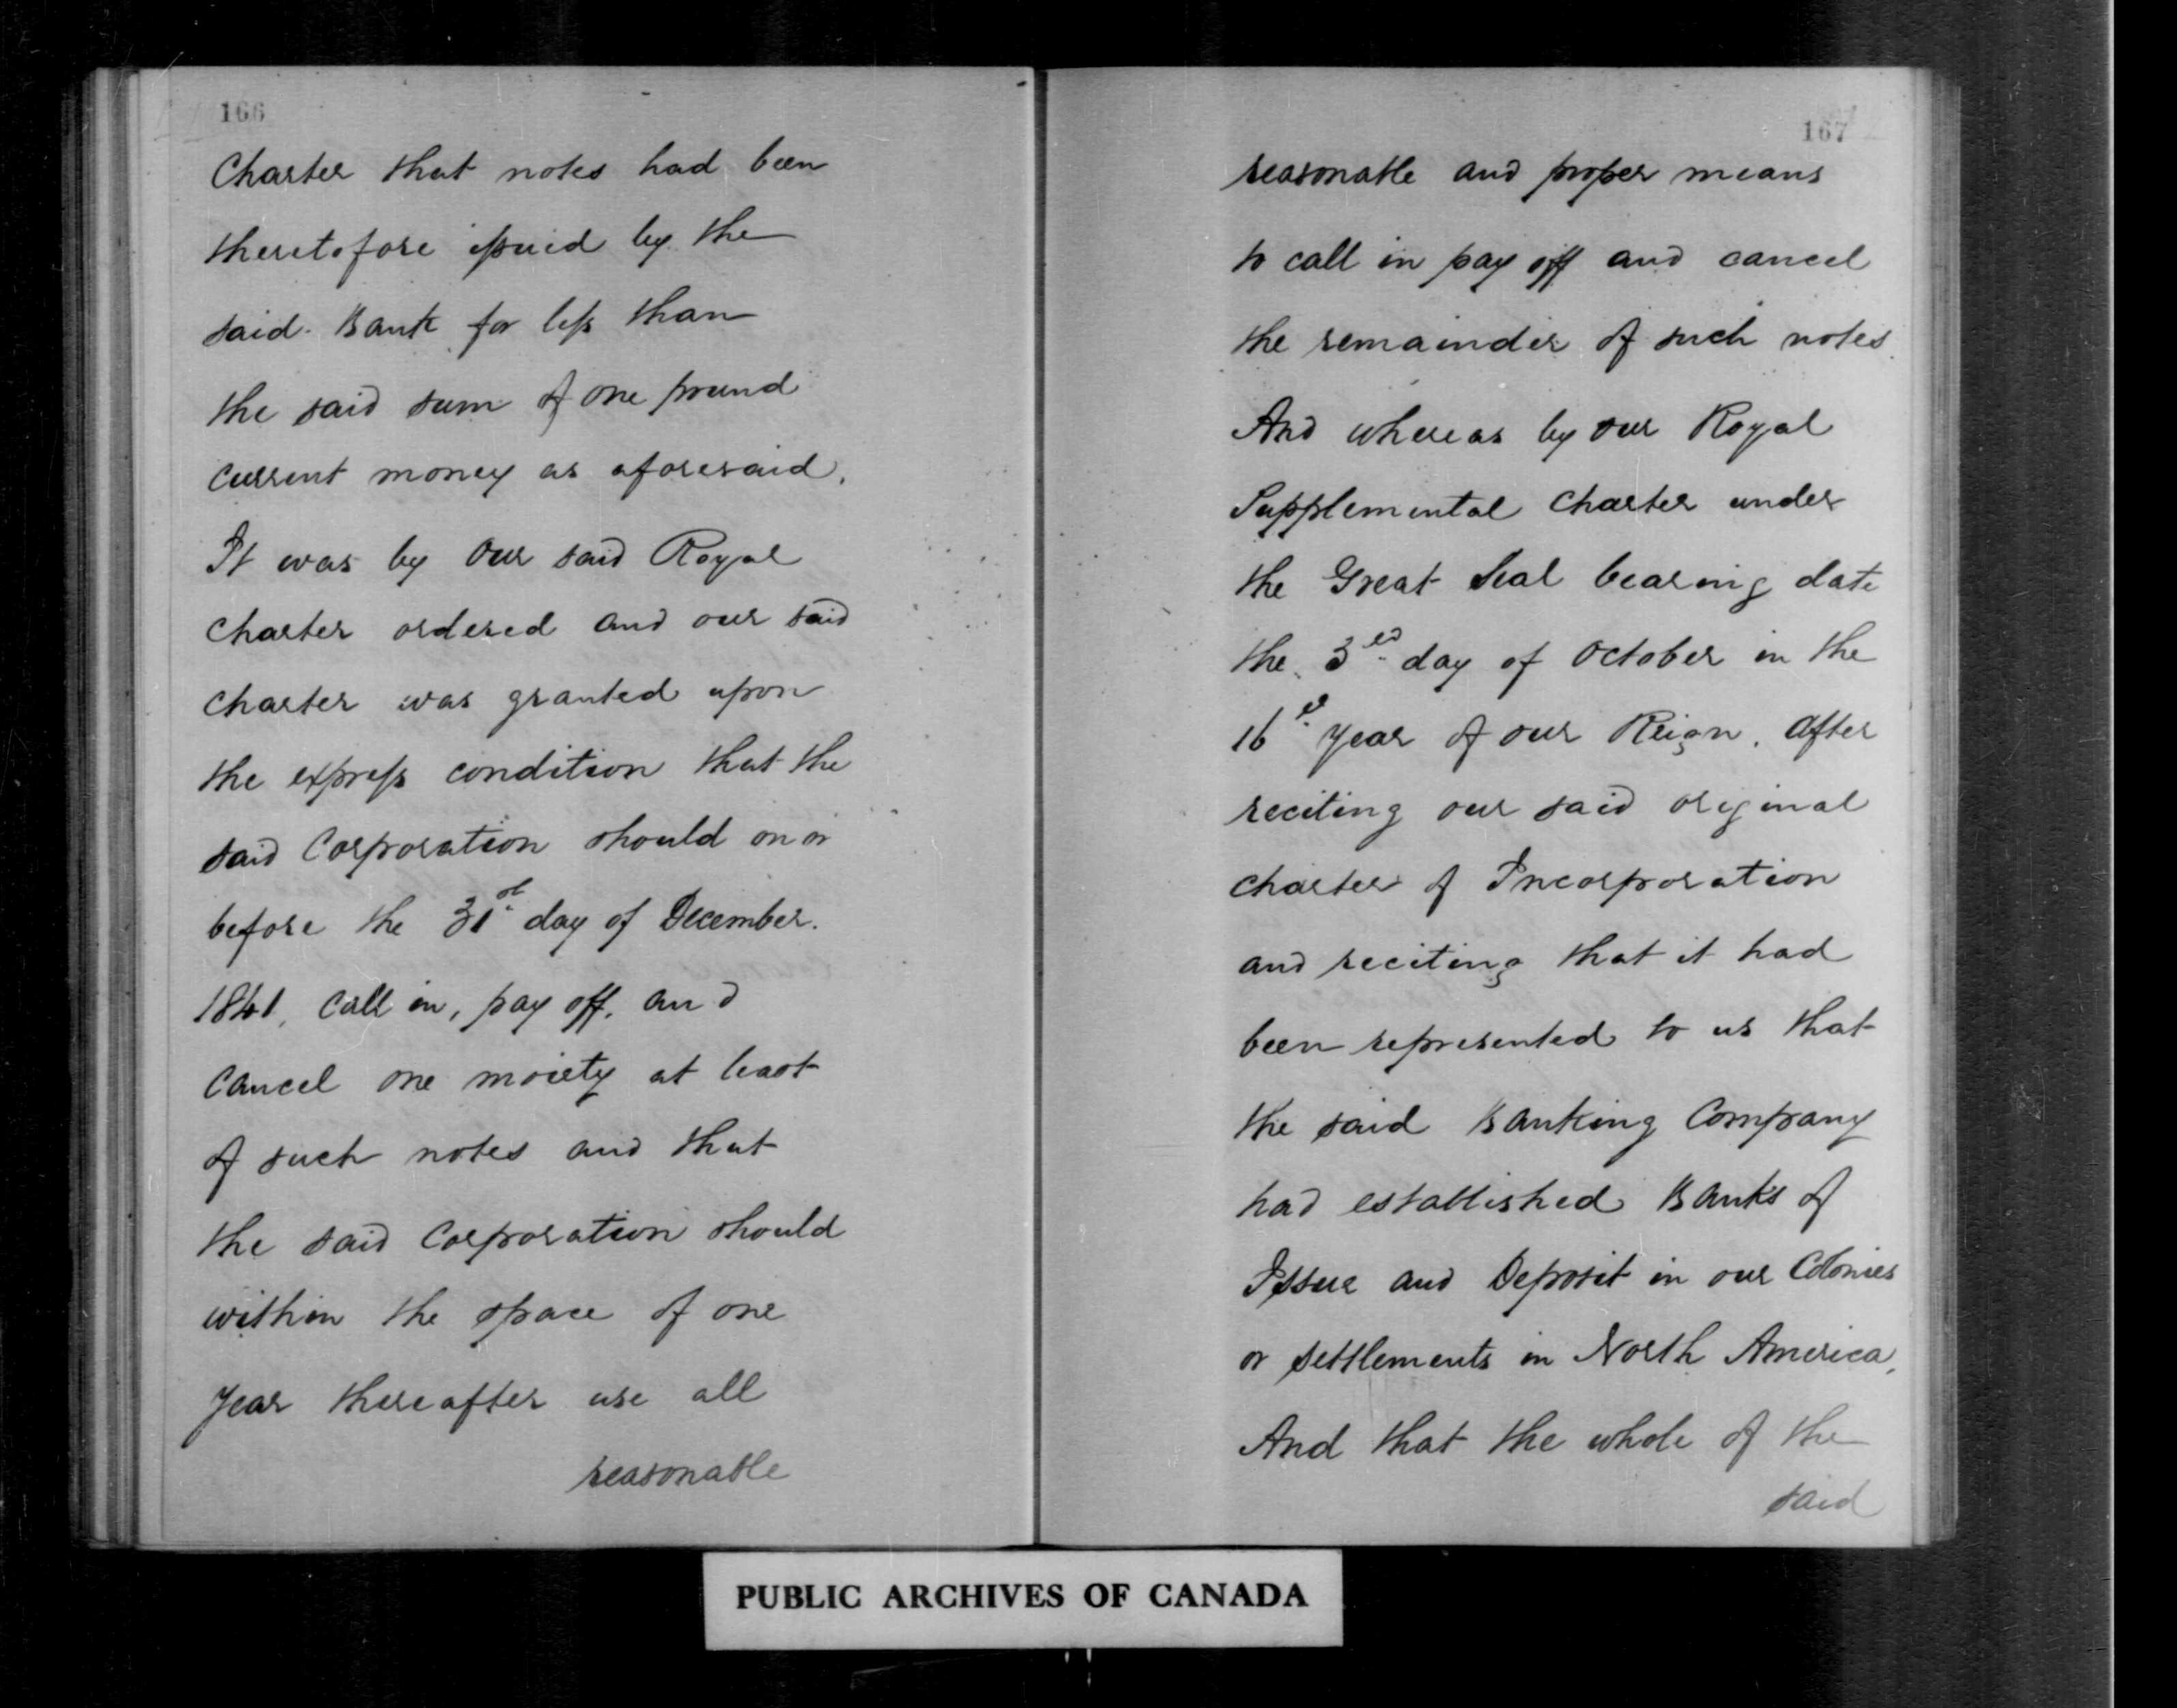 166
Charter that notes had been
theretofore issued by the
said Bank for less than
the said sum of one pound
current money as aforesaid.
It was by Our said Royal
Charter ordered and our said
Charter was granted upon
the express condition that the
said Corporation should on or
before the 31st day of December.
1841, Call in, pay off, and
Cancel one moiety at least
of such notes and that
the said Corporation should
within the space of one
Year thereafter use all
reasonable
167
reasonable and proper means
to call in pay off and cancel
the remainder of such notes.
And whereas by our Royal
Supplemental Charter under
the Great Seal bearing date
the 3rd day of October in the
16th Year of our Reign. After
reciting our said original
Charter of Incorporation
and reciting that it had
been represented to us that
the said Banking Company
had established Banks of
Issue and Deposit in our Colonies
or settlements in North America,
And that the whole of the
said
PUBLIC ARCHIVES OF CANADA